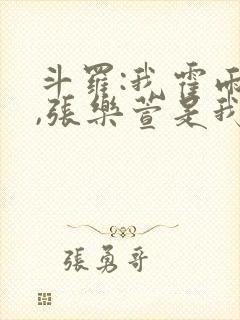 斗羅:我霍雨
,張樂萱是我
張勇哥